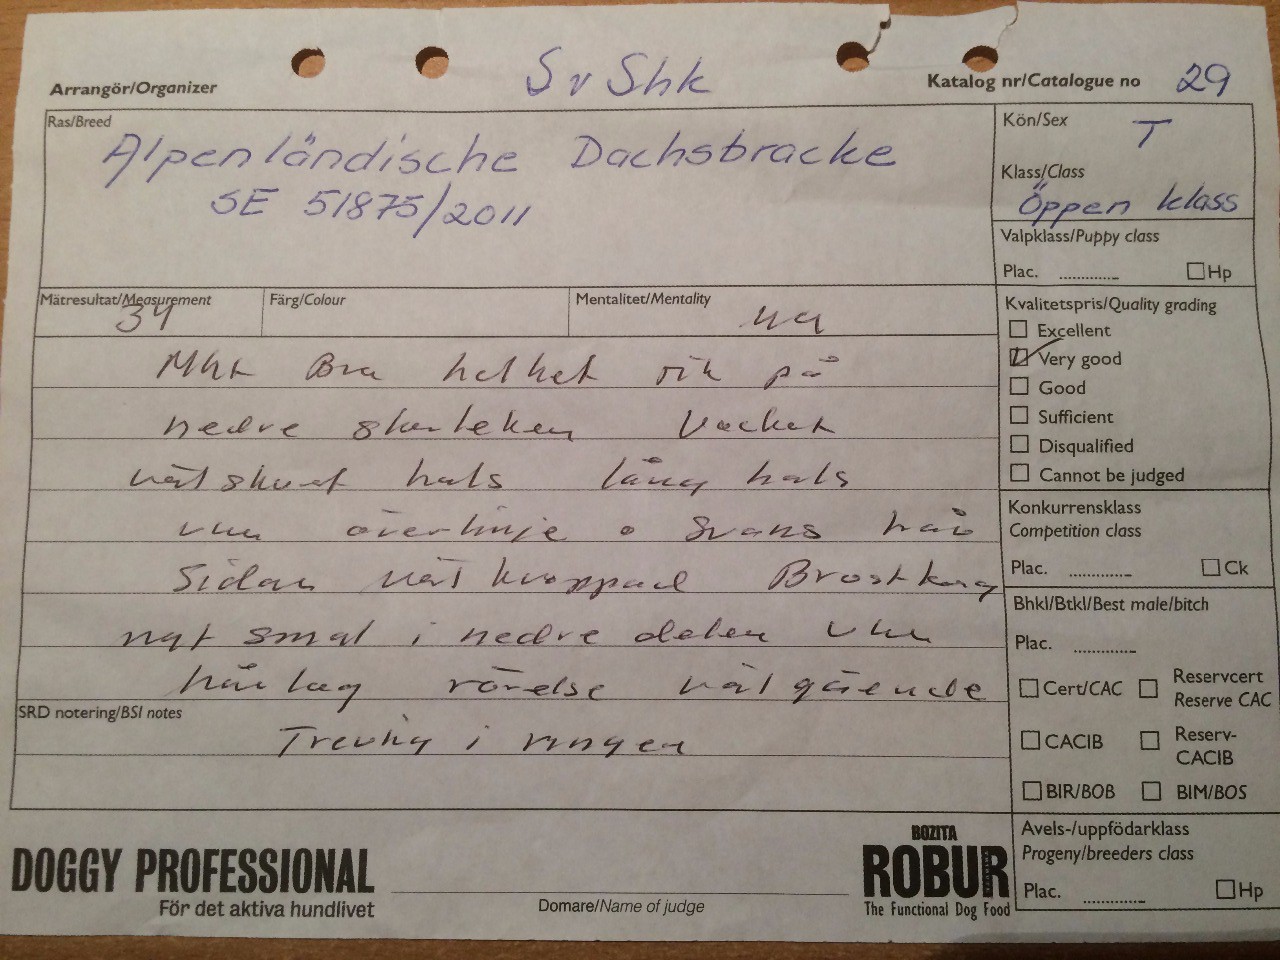 Arrangör/Organizer
SvShk
Katalog nr/Catalogue no 29
Ras/Breed
Alpenländische Dachsbracke
SE 51875/2011
Kön/Sex T
Klass/Class
Öppen klass
Valpklass/Puppy class
Plac. ............. Hp
Mätresultat/Measurement
34
Färg/Colour
Mentalitet/Mentality
ua
Mkt Bra helhet rik på
nedre skarteken Vacket
välskuret hals lång hals
vkn överlinje o svans från
Sidan väl kroppad Brostkorg
ngt smal i nedre delen vkn
hårlag rörelse välgående
SRD notering/BSI notes
Trevlig i ringen
Kvalitetspris/Quality grading
Excellent
Very good
Good
Sufficient
Disqualified
Cannot be judged
Konkurrensklass
Competition class
Plac. ............. Ck
Bhkl/Btkl/Best male/bitch
Plac. .............
Cert/CAC
Reservcert
Reserve CAC
CACIB
Reserv-
CACIB
BIR/BOB
BIM/BOS
Avels-/uppfödarklass
Progeny/breeders class
Plac. ............. Hp
DOGGY PROFESSIONAL
För det aktiva hundlivet
Domare/Name of judge
BOZITA
ROBUR
The Functional Dog Food